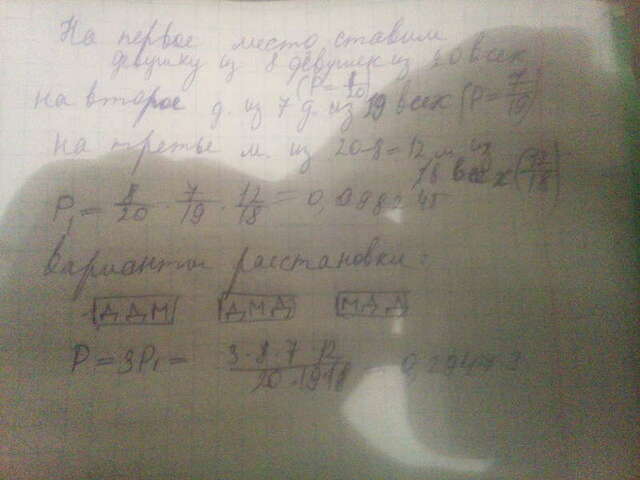 На первое место ставим
девушку из 8 девушек из 20 всех
(P = 8/20)
на второе д. из 7 д. из 19 всех (P = 7/19)
на третье м. из 20-8=12 м. из
18 всех (12/18)
P₁ = 8/20 · 7/19 · 12/18 = 0,098245
Варианты расстановки:
ДДМ ДМД МДД
P = 3P₁ = 3·8·7·12/20·19·18